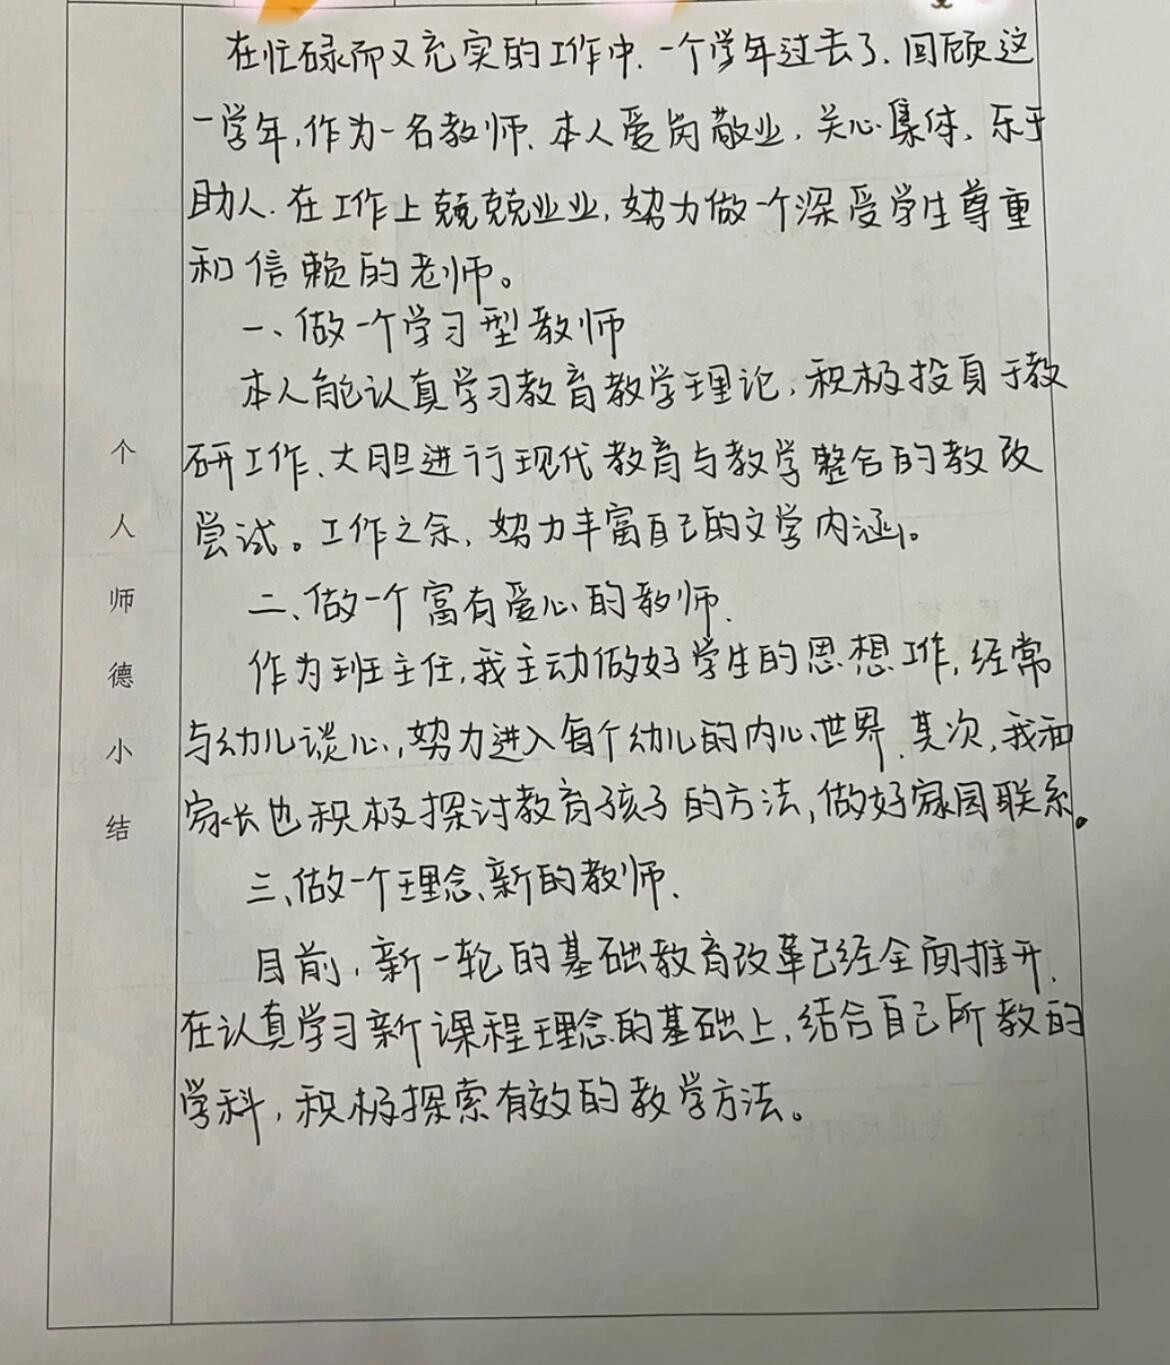 个人师德小结
在忙碌而又充实的工作中.一个学年过去了.回顾这
一学年,作为一名教师.本人爱岗敬业,关心集体,乐于
助人.在工作上兢兢业业,努力做一个深受学生尊重
和信赖的老师。
一、做一个学习型教师
本人能认真学习教育教学理论,积极投身于教
研工作、大胆进行现代教育与教学整合的教改
尝试。工作之余,努力丰富自己的文学内涵。
二、做一个富有爱心的教师.
作为班主任,我主动做好学生的思想工作,经常
与幼儿谈心,努力进入每个幼儿的内心世界.其次,我和
家长也积极探讨教育孩子的方法,做好家园联系。
三、做一个理念、新的教师.
目前,新一轮的基础教育改革已经全面推开.
在认真学习新课程理念的基础上,结合自己所教的
学科,积极探索有效的教学方法。